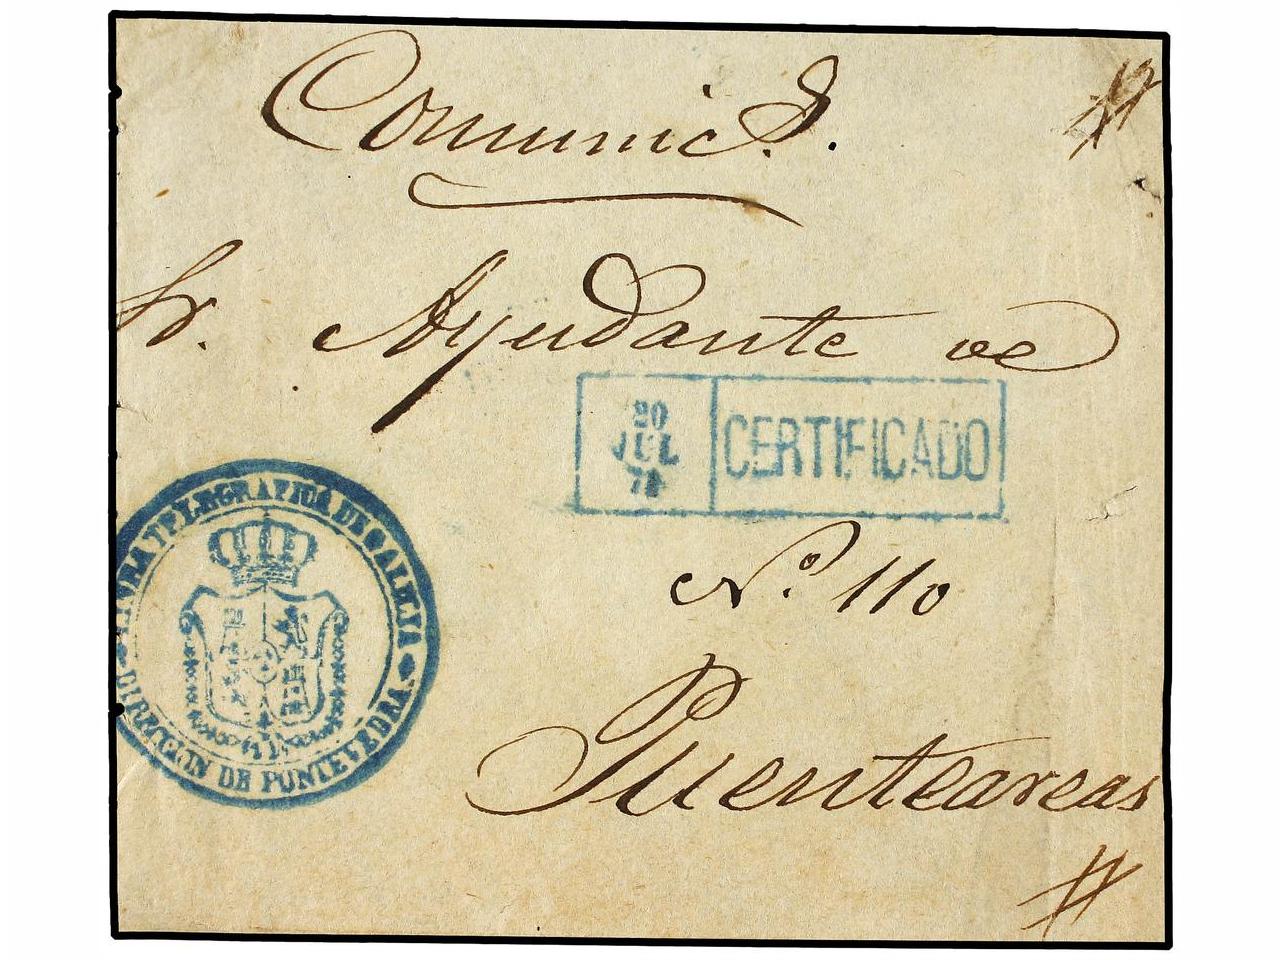 Comunic. S.
Sr. Ayudante de
20
JUL
CERTIFICADO
TELEGRAFICA DE GALICIA
DIRECCION DE PONTEVEDRA.
Nº. 110
Puenteareas